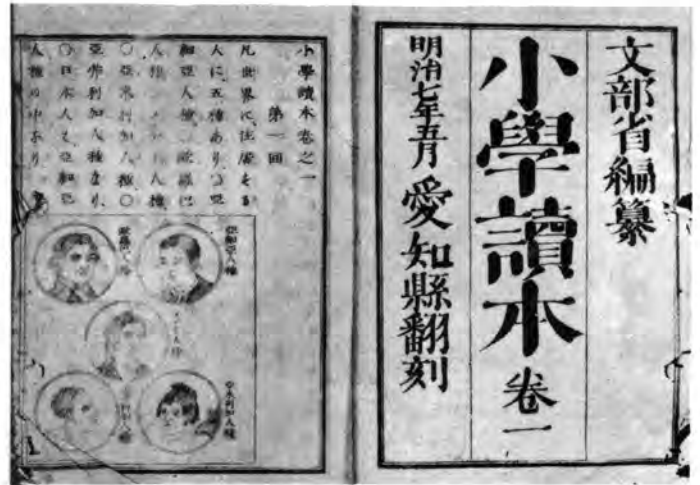 文部省編纂
小學讀本 卷一
明治七年五月 愛知縣翻刻
小學讀本卷之一
第一回
凡世界に住居する
人に、五種あり、〇亞
細亞人種、〇歐羅巴
人種、人種、
〇亞米利加人種、〇
亞弗利加人種なり、
〇日本人も、亞細亞
人種の中なり、
亞細亞人種
歐羅巴人種
人種
亞米利加人種
人種